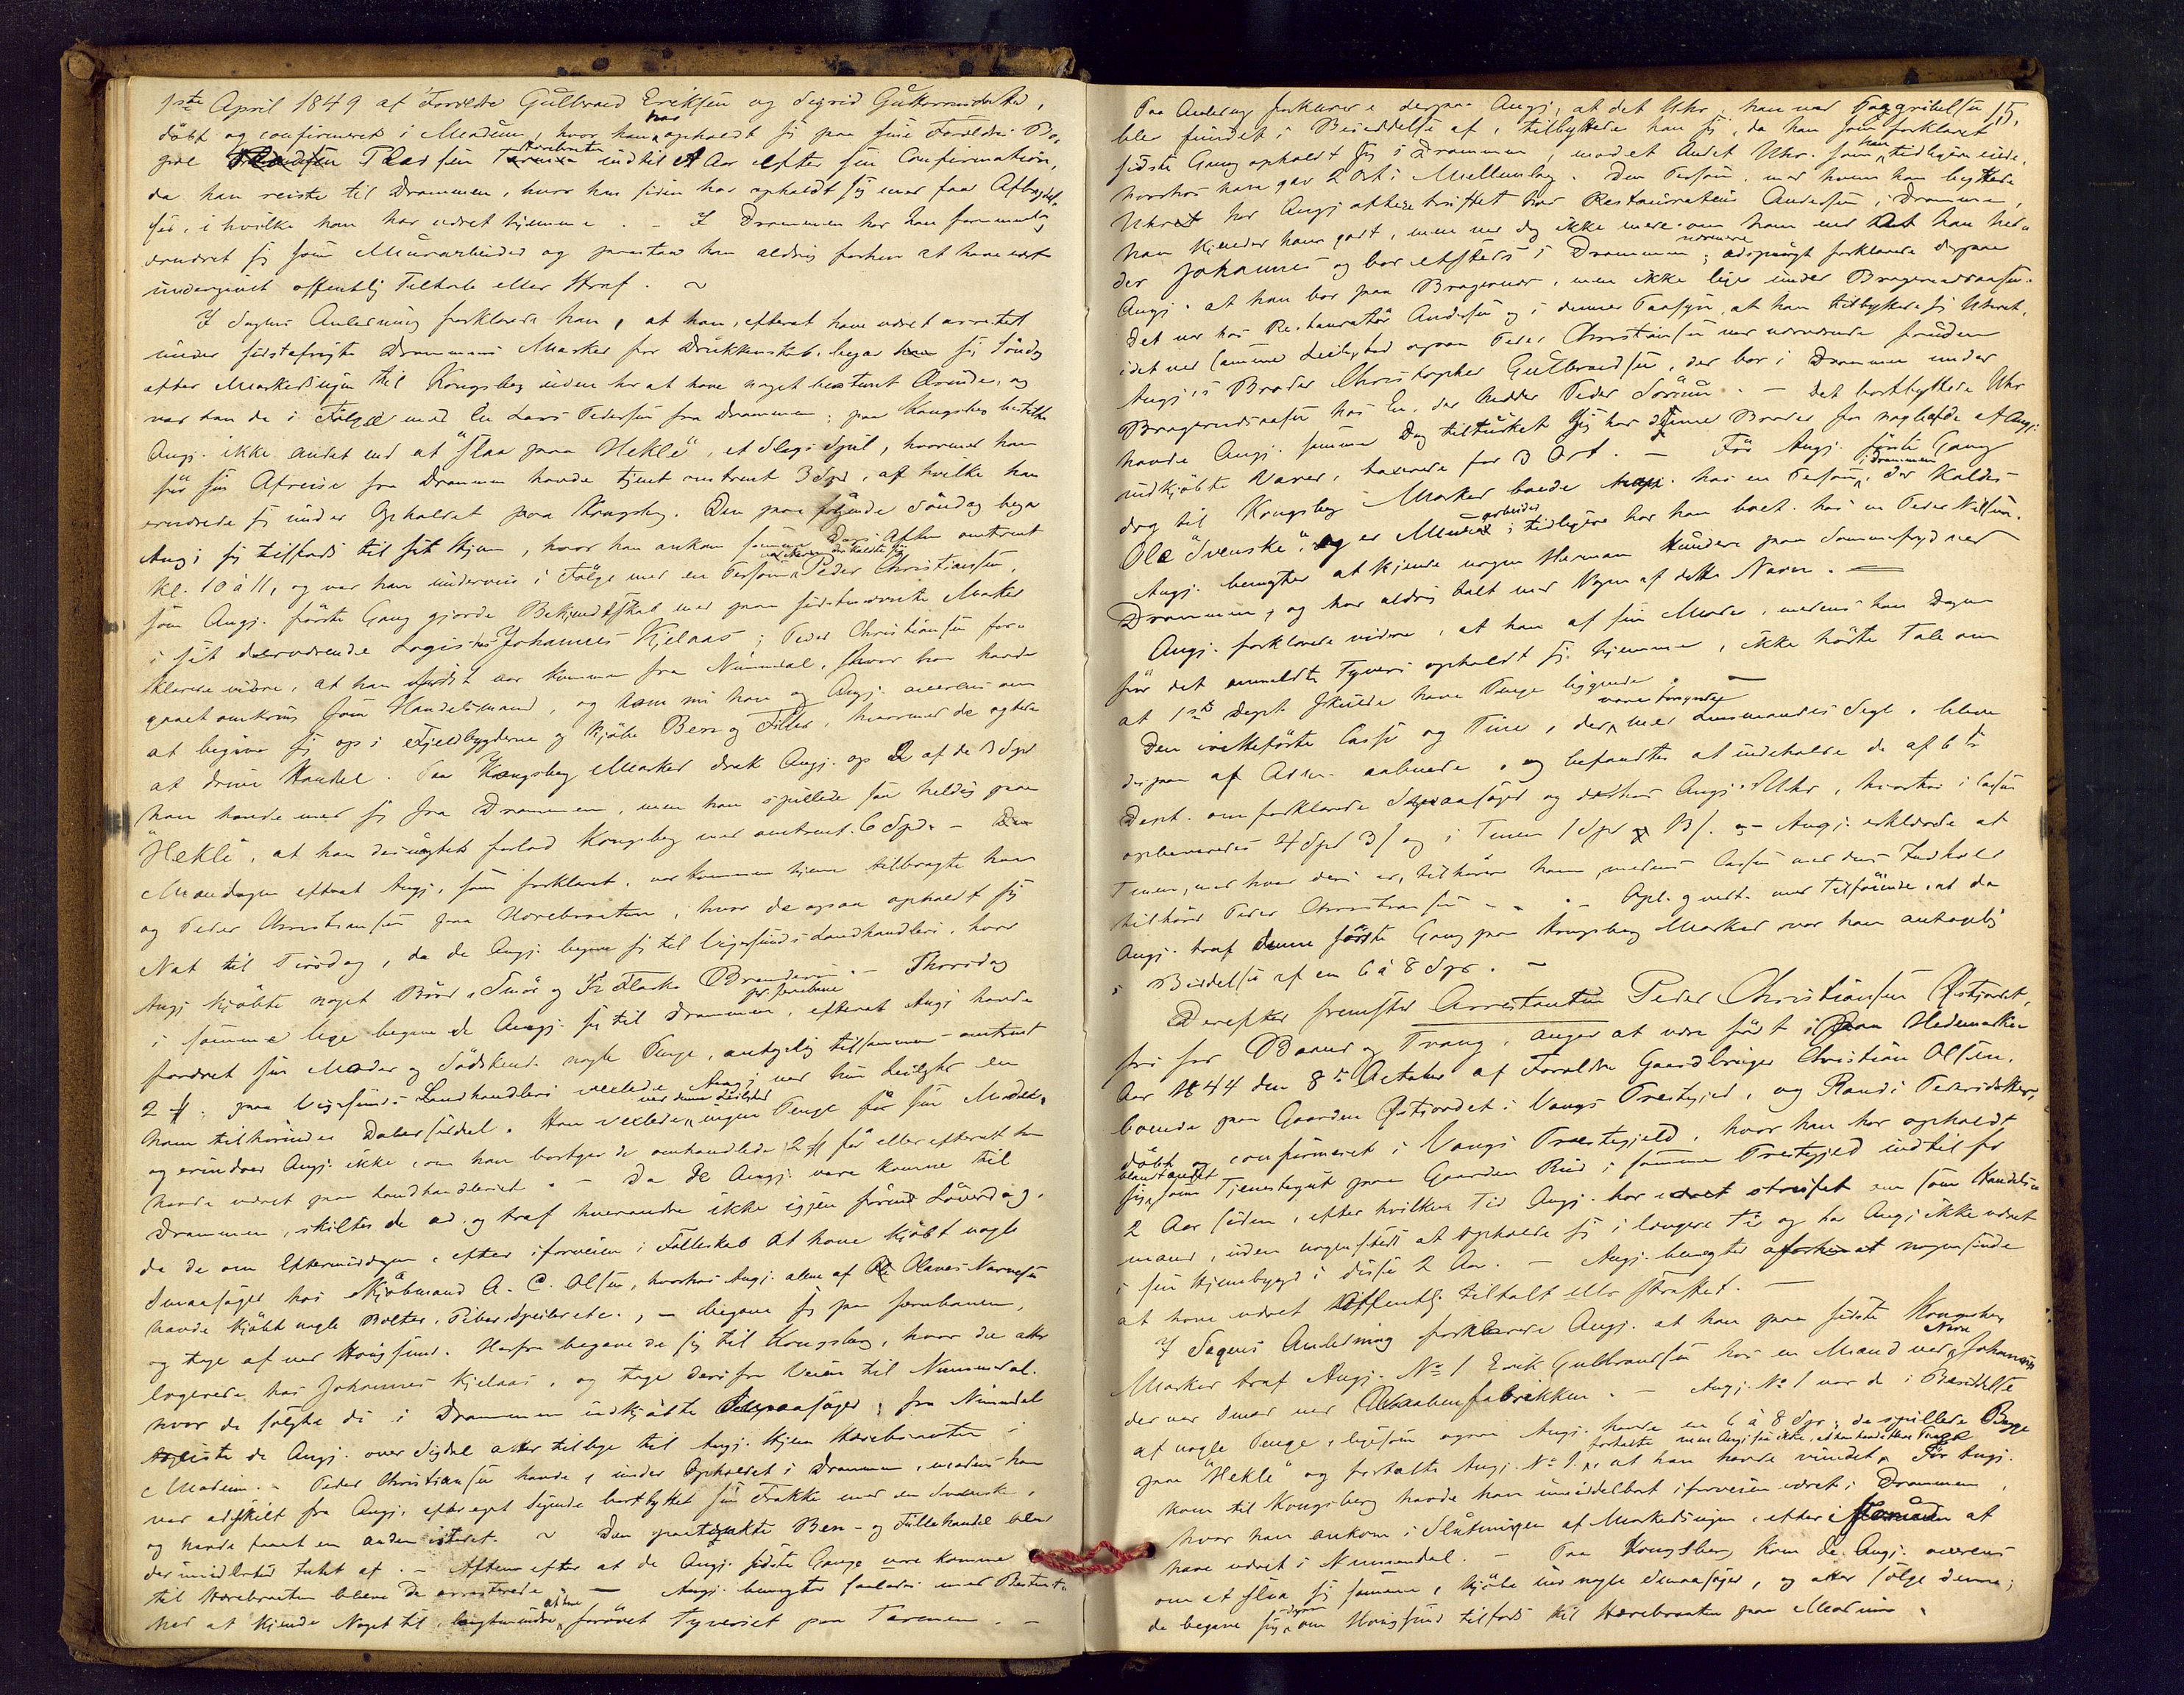 1ste April 1849 af Forældre Gulbrand Eriksen og Sigrid Guttormsdatter,
döbt og confirmeret i Modum, hvor han har opholdt sig paa sine Forældres Bo-
pæl Pladsen Horebraaten indtil Aar efter sin Confirmation,
da han reiste til Drammen, hvor han siden har opholdt sig med faa Afbrydel-
ser, i hvilke han har været hjemme. - I Drammen har han fornemmelig
ernæret sig som Murarbeider og paastaar han aldrig forhen at have været
undergivet offentlig Tiltale eller Straf. ~
I Sagens Anledning forklarede han, at han, efterat have været arresteret
under sidstafvigte Drammens Marked for Drukkenskab, begav sig Söndag
efter Markedsugen til Kongsberg uden for at have noget bestemt Ærinde, og
var han da i Fölge med En Lars Pedersen fra Drammen; paa Kongsberg bestilte
Angj. ikke andet end at "slaa paa Hekle", et Slags Spil, hvormed han
för sin Afreise fra Drammen havde tjent omtrent 3 Spd, af hvilke han
ernærede sig under Opholdet paa Kongsberg. Den paafölgende Söndag begav
Angj. sig tilfods til sit Hjem, hvor han ankom samme Dags Aften omtrent
Kl. 10 à 11, og var han underveis i Fölge med en Person, ved Navn Peder Christiansen,
som Angj. förste Gang gjorde Bekjendtskab med paa sidstnævnte Marked
i sit derværende Logis hos Johannes Kjelaas; Peder Christiansen for-
klarede videre, at han nylig var kommen fra Numedal, hvor han havde
gaaet omkring som Handelsmand, og kom nu han og Angj. overens om
at begive sig op i Fjeldbygderne og kjöbe Ben og Filler, hvormed de agtede
at drive Handel. Paa Kongsberg Marked drak Angj. op 2 af de 3 Spd
han havde med sig fra Drammen, men han spillede saa heldig paa
"Hekle", at han desuagtet forlod Kongsberg med omtrent 6 Spd. -
Mandagen efterat Angj., som forklaret, var kommen hjem tilbragte han
og Peder Christiansen paa Horebraaten, hvor de ogsaa opholdt sig
Nat til Tirsdag, da de Angj. begave sig til Vigersunds Landhandleri, hvor
Angj. kjöbte noget Bröd, Smör og ½ Flaske Brændeviin. - Thorsdag
i samme Uge begave de Angj. sig per Jernbane til Drammen, efterat Angj. havde
fordret sin Moder og Södskende nogle Penge, antagelig tilsammen omtrent
2 ₰: paa Vigersunds Landhandleri vexlede Angj. ved sin Leilighed en
ham tilhörende Dalerseddel. Han vexlede ved denne Leilighed ingen Penge for sin Moder,
og erindrer Angj. ikke, om han bortgav de omhandlede 2 ₰ för eller efterat han
havde været paa Landhandleriet. - Da de Angj. vare komne til
Drammen, skiltes de ad og traf hverandre ikke igjen förend Löverdag,
da de om Eftermiddagen, efter iforveien i Fælleskab at have kjöbt nogle
Smaasager hos Kjöbmand A. C. Olsen, hvorhos Angj. alene af Olaves Narvesen
havde kjöbt nogle Belter, Piber, Speile etc., - begave sig paa Jernbanen,
og toge af ved Hougsund. Herfra begave de sig til Kongsberg, hvor de atter
logerede hos Johannes Kjelaas, og toge derifra Veien til Nummedal,
hvor de solgte de i Drammen indkjöbte Smaasager; fra Numedal
reiste de Angj. over Sigdal atter tilbage til Angj. Hjem Horebraaten i
Modum. - Peder Christiansen havde, under Opholdet i Drammen, medens han
var adskilt fra Angj., efter eget Sigende bortbyttet sin Frakke med en Svenske,
og havde faaet en anden isteden. ~ Den paatænkte Ben- og Fillehandel blev
der imidlertid intet af. - Aftenen efter at de Angj. sidste Gang vare komne
til Horebraaten bleve de arresterede. - Angj. benægter saaledes med Bestemt-
hed at kjende Noget til, langt mindre at have forövet Tyveriet paa Taremen. -
15.
Paa Anledning forklarede derpaa Angj. at det Uhr, han ved Paagribelsen
blev fundet i Besiddelse af, tilbyttede han sig, da han som forklaret
sidste Gang opholdt sig i Drammen, mod et Andet Uhr, som han tidligere eiede,
hvorhos han gav 2 Ort i Mellemlag. Den Person, med hvem han byttede
Uhret har Angj. oftere truffet hos Restaurateur Andersen, i Drammen,
han kjender ham godt, men ved dog ikke mere om ham end at han hed-
der Johannes og bor etsteds i Drammen; nærmere adspurgt forklarede derpaa
Angj. at han bor paa Bragernæs, men ikke lige under Bragernæsaasen.
Det var hos Restauratör Andersen og i dennes Paasyn, at han tilbyttede sig Uhret,
idet ved samme Leilighed ogsaa Peder Christiansen var nærværende foruden
Angj.s Broder Christopher Gulbrandsen, der bor i Drammen under
Bragernæsaasen hos En, der hedder Peder Sörum. - Det bortbyttede Uhr
havde Angj. samme Dag tiltusket sig hos denne Broder for nogle af de af Angj.
indkjöbte Varer, taxerede for 3 Ort. - För Angj. förste Gang
drog til Kongsberg Marked boede Angj. hos en Person i Drammen, der kaldes
Ole "Svenske", og er Murarbeider; tidligere har han boet hos en Peder Nilsen.
Angj. benægter at kjende nogen Herman Hundere paa Sommerfryd ved
Drammen, og har aldrig talt med Nogen af dette Navn. -
Angj. forklarede videre, at han af sin Moder, medens han Dagen
för det anmeldte Tyveri opholdt sig hjemme, ikke hörte Tale om
at 1ste Depst skulde have Penge liggende. -
Den irettelagte Casse og Tine, der vare forsynede med Lensmandens Segl, bleve
derpaa af Adm. aabnede, og befandtes at indeholde de af 6te
Depst. omforklarede Smaasager og desuden Angj.s Uhr, hvorhos i Cassen
opbevaredes 4 Spd 3/ og i Tinen 1 Spd 13/. - Angj. erklærede at
Tinen, med hvad deri er, tilhörer ham, medens Cassen med dens Indhold
tilhörer Peder Christiansen - - - Opl. g vedt. med Tilföiende, at da
Angj. traf denne förste Gang paa Kongsberg Marked var han antagelig
i Besiddelse af en 6 à 8 Spd. -
Derefter fremstod Arrestanten Peder Christiansen Östjordet,
fri for Baand og Tvang, angav at være född i paa Hedemarken
Aar 1844 den 8de October af Forældre Gaardbruger Christian Olsen,
boende paa Gaarden Östjordet i Vangs Prestegjeld, og Randi Pedersdatter,
döbt og confirmeret i Vangs Præstegjeld, hvor han har opholdt
sig, blandt andet som Tjenestegut paa Gaarden Rud i samme Prestegjeld indtil for
2 Aar siden, efter hvilken Tid Angj. har streifet om som Handels-
mand, uden nogensteds at opholde sig i længere Tid og har Angj. ikke været
i sin Hjembygd i disse 2 Aar. - Angj. benægter forhen at nogensinde
at have været offentlig tiltalt eller straffet. -
I Sagens Anledning forklarede Angj. at han paa sidste Kongsberg
Marked traf Angj. No 1 Erik Gulbrandsen hos en Mand ved Navn Johannes,
der var Smed ved Vaabenfabrikken. - Angj. No 1 var da i Besiddelse
af nogle Penge, ligesom ogsaa Angj. havde en 6 à 8 Spd; de spillede Begge
paa "Hekle" og fortalte Angj. No 1, at han havde vundet, men Angj. saa ikke, at han havde flere Penge. För Angj.
kom til Kongsberg havde han umiddelbart iforveien været i Drammen,
hvor han ankom i Slutningen af Markedsugen, efter at
have været i Nummedal. - Paa Kongsberg kom de Angj. overens
om at slaa sig sammen, kjöbe ind nogle Smaasager, og atter sælge denne;
de begave sig derpaa om Hougsund tilfods til Horebraaten paa Modum,